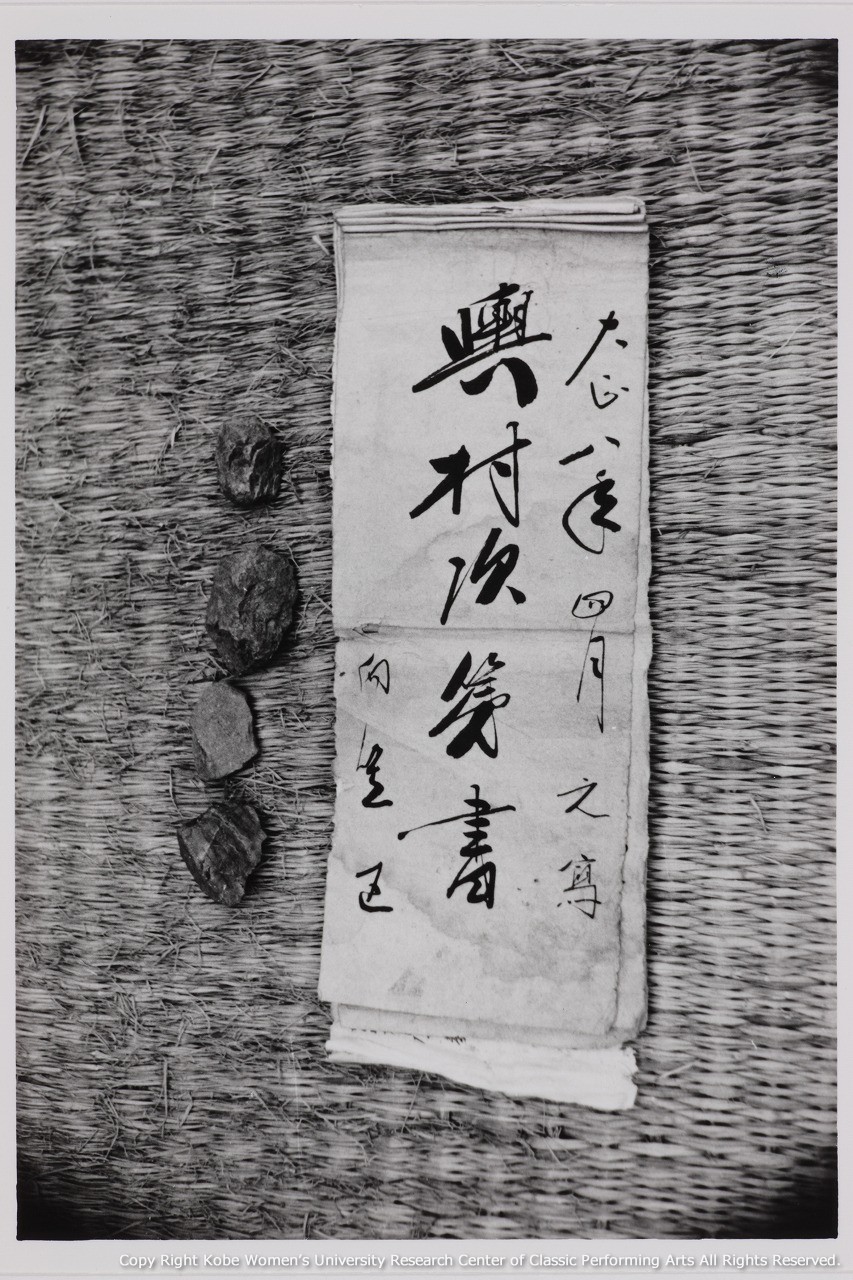 大正八年四月 元寫
輿村次第書
向
Copy Right Kobe Women's University Research Center of Classic Performing Arts All Rights Reserved.